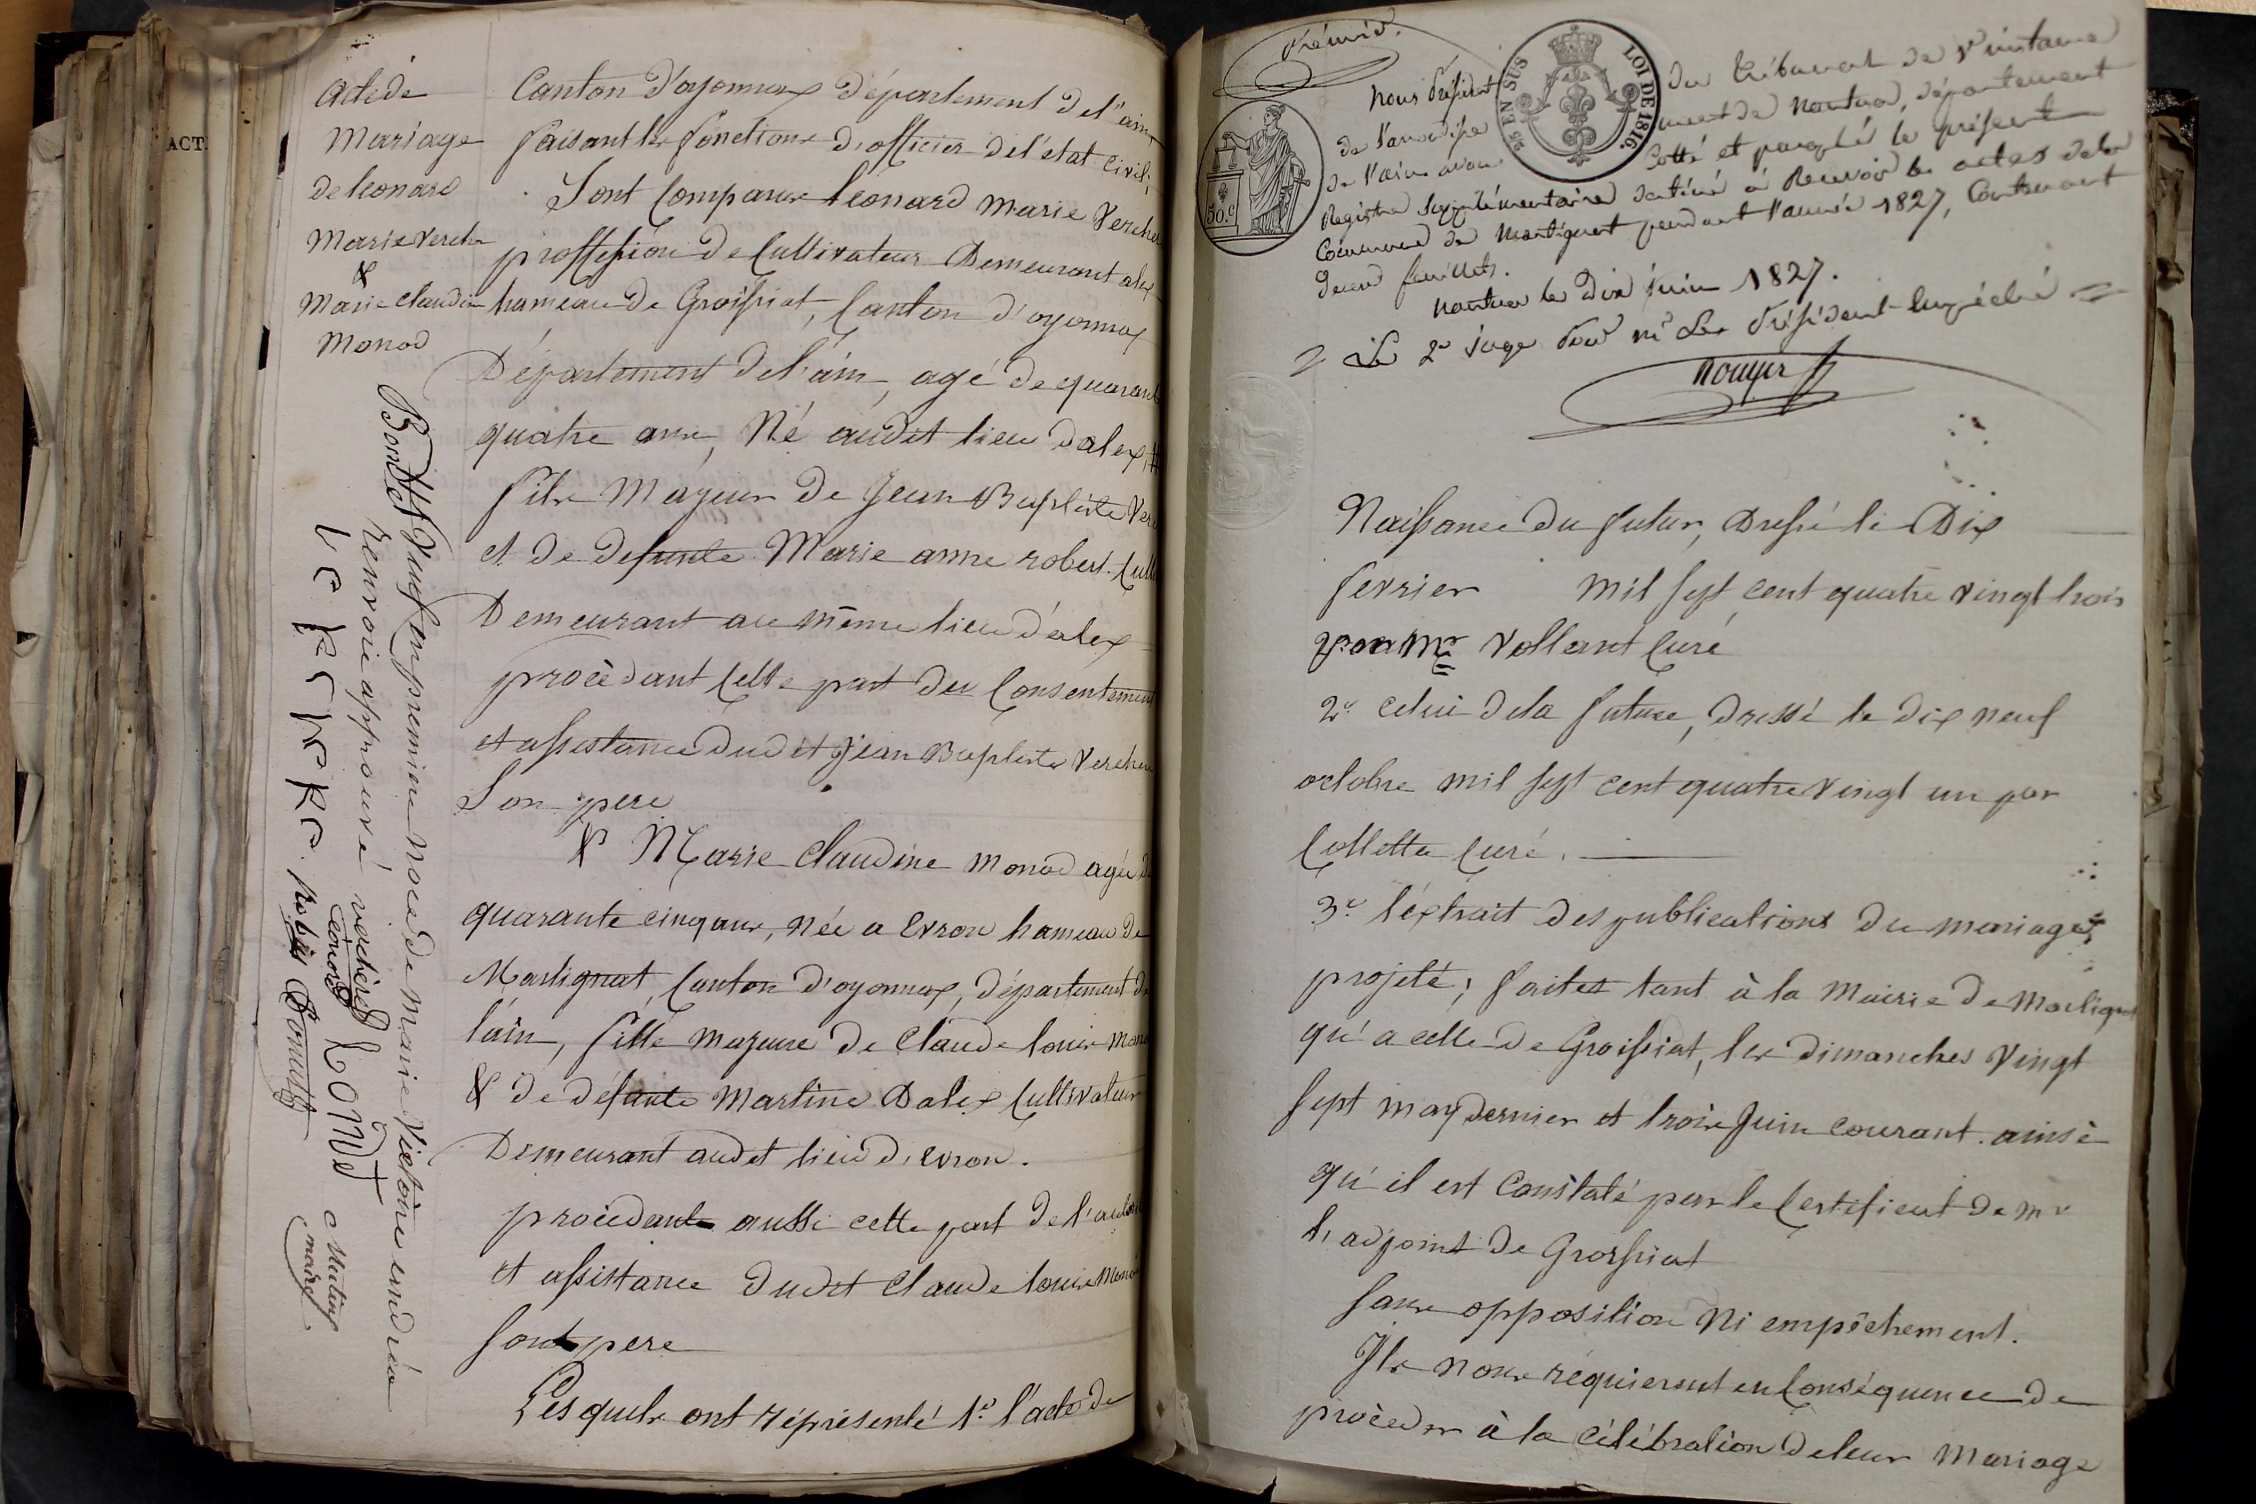 ACT
acte de
mariage
de leonard
Marie Verche
&
Marie claudine
Monod
Canton d'oyonnax département de l'ain,
faisant les fonctions d'officier de l'état civil;
Sont Comparus léonard marie Verche
proffession de Cultivateur Demeurant alex
hameau de Groissiat, Canton d'oyonnax
Département de l'ain, agé de quarante
quatre ans, Né audit lieu dalex, #
fils Majeur de Jean Baptiste Ver
et de defunte Marie anne robert Cult
Demeurant au même lieu d'alex
procèdant Cette part du Consentement
et assistance dudit Jean Baptiste Verche
Son pere
& Marie claudine monod agée de
quarante cinq ans, née a Evron hameau de
Martignat, Canton d'oyonnax, département de
l'ain, fille majeure de Claude louis Mono
& de défunte Martine Dalex Cultivateur
Demeurant audit lieu d'evron.
procèdante aussi cette part de l'autori
et assistance dudit Claude louis Mono
sont pere
Lesquels ont répresenté 1º l'acte de
# veuf en premiere noce de marie Victoire
renvoie approuvé
vercher
Léonard
maire
vramis.
45 EN SUS
LOI DE 1816.
50.c
Nous Président du tribunal de 1re instance
de l'arrondissement de Nantua, département
de l'ain avons Cotté et paraphé le présent
Registre supplémentaire destiné à Recevoir les actes de la
Commune de Martignat pendant l'année 1827, Contenant
deux feuillets.
Nantua le Dix juin 1827.
Le 2e juge Pour mr Le Président Empêché
Naissance du futur, Dressé le Dix
fevrier mil sept cent quatre vingt trois
par Mr Vollant Curé
2º celui de la future, dressé le dix neuf
octobre mil sept cent quatre Vingt un par
Collette Curé.
3º l'éxtrait des publications du mariage
projeté; faites tant à la Mairie de Martignat
qu'a celle de Groissiat, les dimanches Vingt
sept may dernier et trois Juin courant. ainsi
qu'il est Constaté par le Certificat de mr
l'adjoint de Groissiat
sans opposition Ni empêchement.
Ils nous réquierent en Conséquence de
procèder à la célébration de leur Mariage